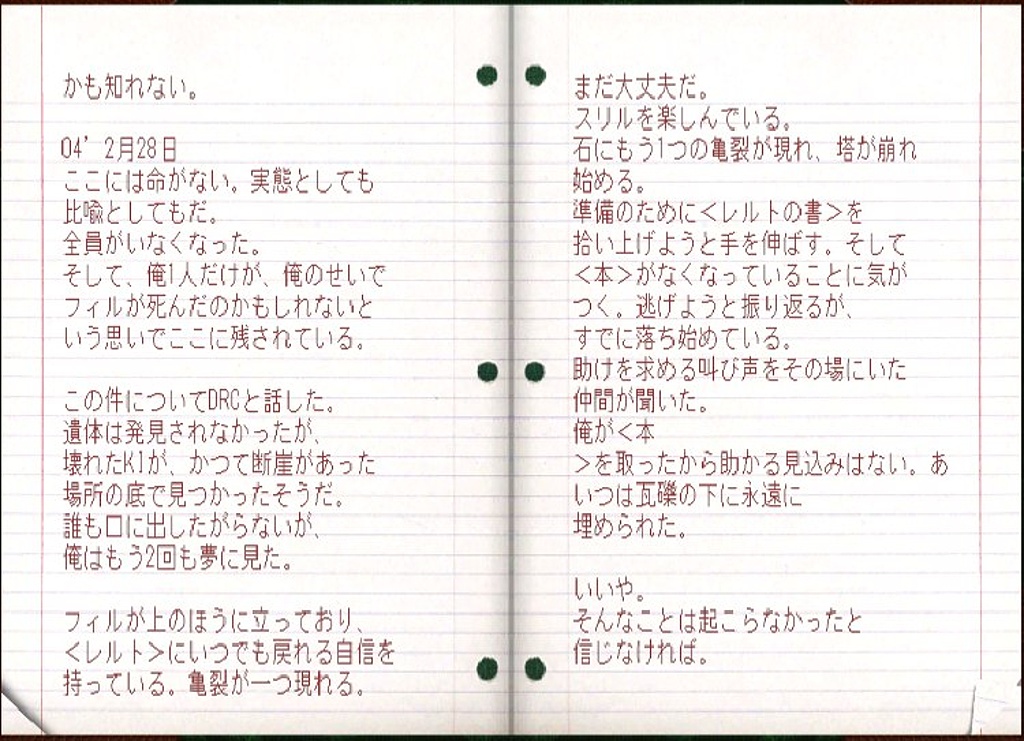 かも知れない。
04’ 2月28日
ここには命がない。実態としても
比喩としてもだ。
全員がいなくなった。
そして、俺1人だけが、俺のせいで
フィルが死んだのかもしれないと
いう思いでここに残されている。
この件についてDRCと話した。
遺体は発見されなかったが、
壊れたKIが、かつて断崖があった
場所の底で見つかったそうだ。
誰も口に出したがらないが、
俺はもう2回も夢に見た。
フィルが上のほうに立っており、
<レルト>にいつでも戻れる自信を
持っている。亀裂が一つ現れる。
まだ大丈夫だ。
スリルを楽しんでいる。
石にもう1つの亀裂が現れ、塔が崩れ
始める。
準備のために<レルトの書>を
拾い上げようと手を伸ばす。そして
<本>がなくなっていることに気が
つく。逃げようと振り返るが、
すでに落ち始めている。
助けを求める叫び声をその場にいた
仲間が聞いた。
俺が<本
>を取ったから助かる見込みはない。あ
いつは瓦礫の下に永遠に
埋められた。
いいや。
そんなことは起こらなかったと
信じなければ。